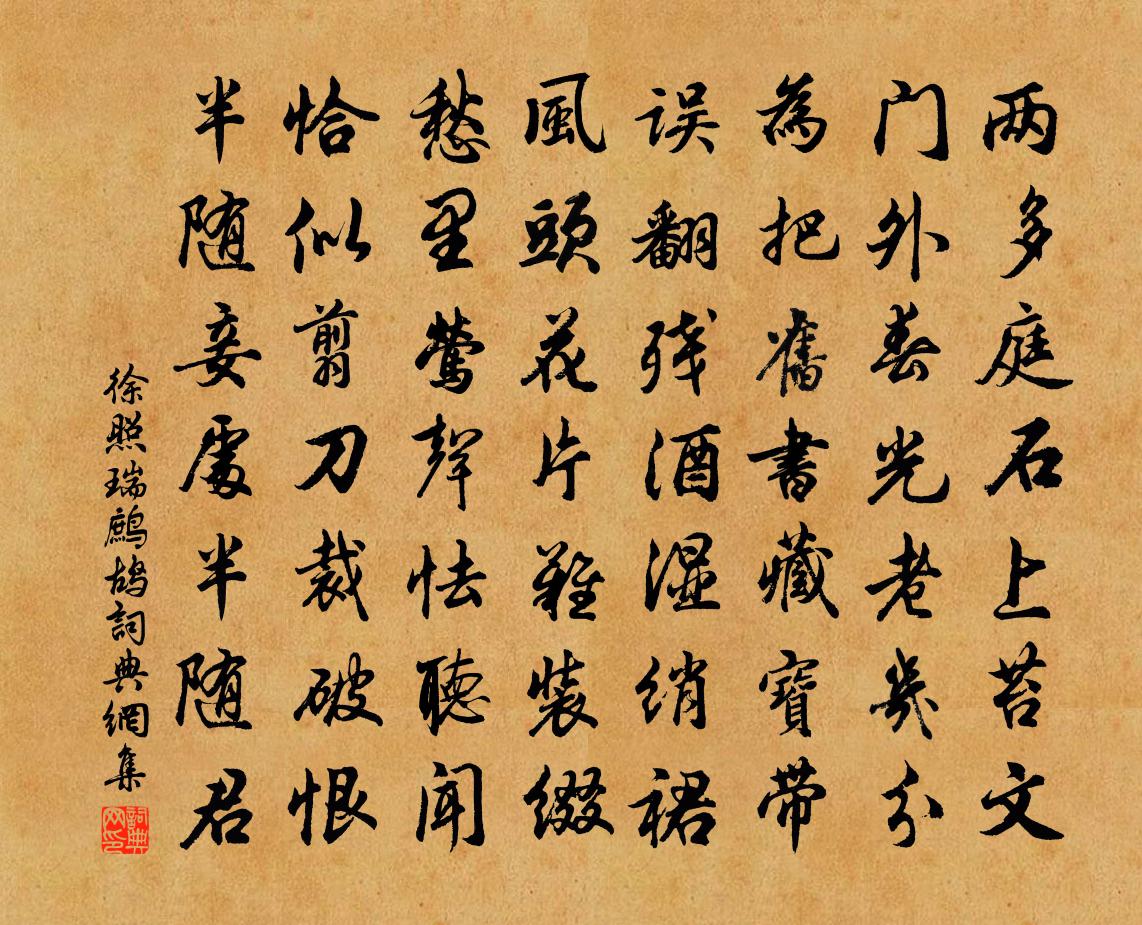 两多庭石上苔文
门外春光老幾分
為把舊書藏寶带
误翻残酒湿绡裙
風頭花片難装缀
愁里鶯聲怯聽闻
恰似翦刀裁破恨
半随妾處半随君
徐照瑞鷓鴣詞典網集
詞典网印